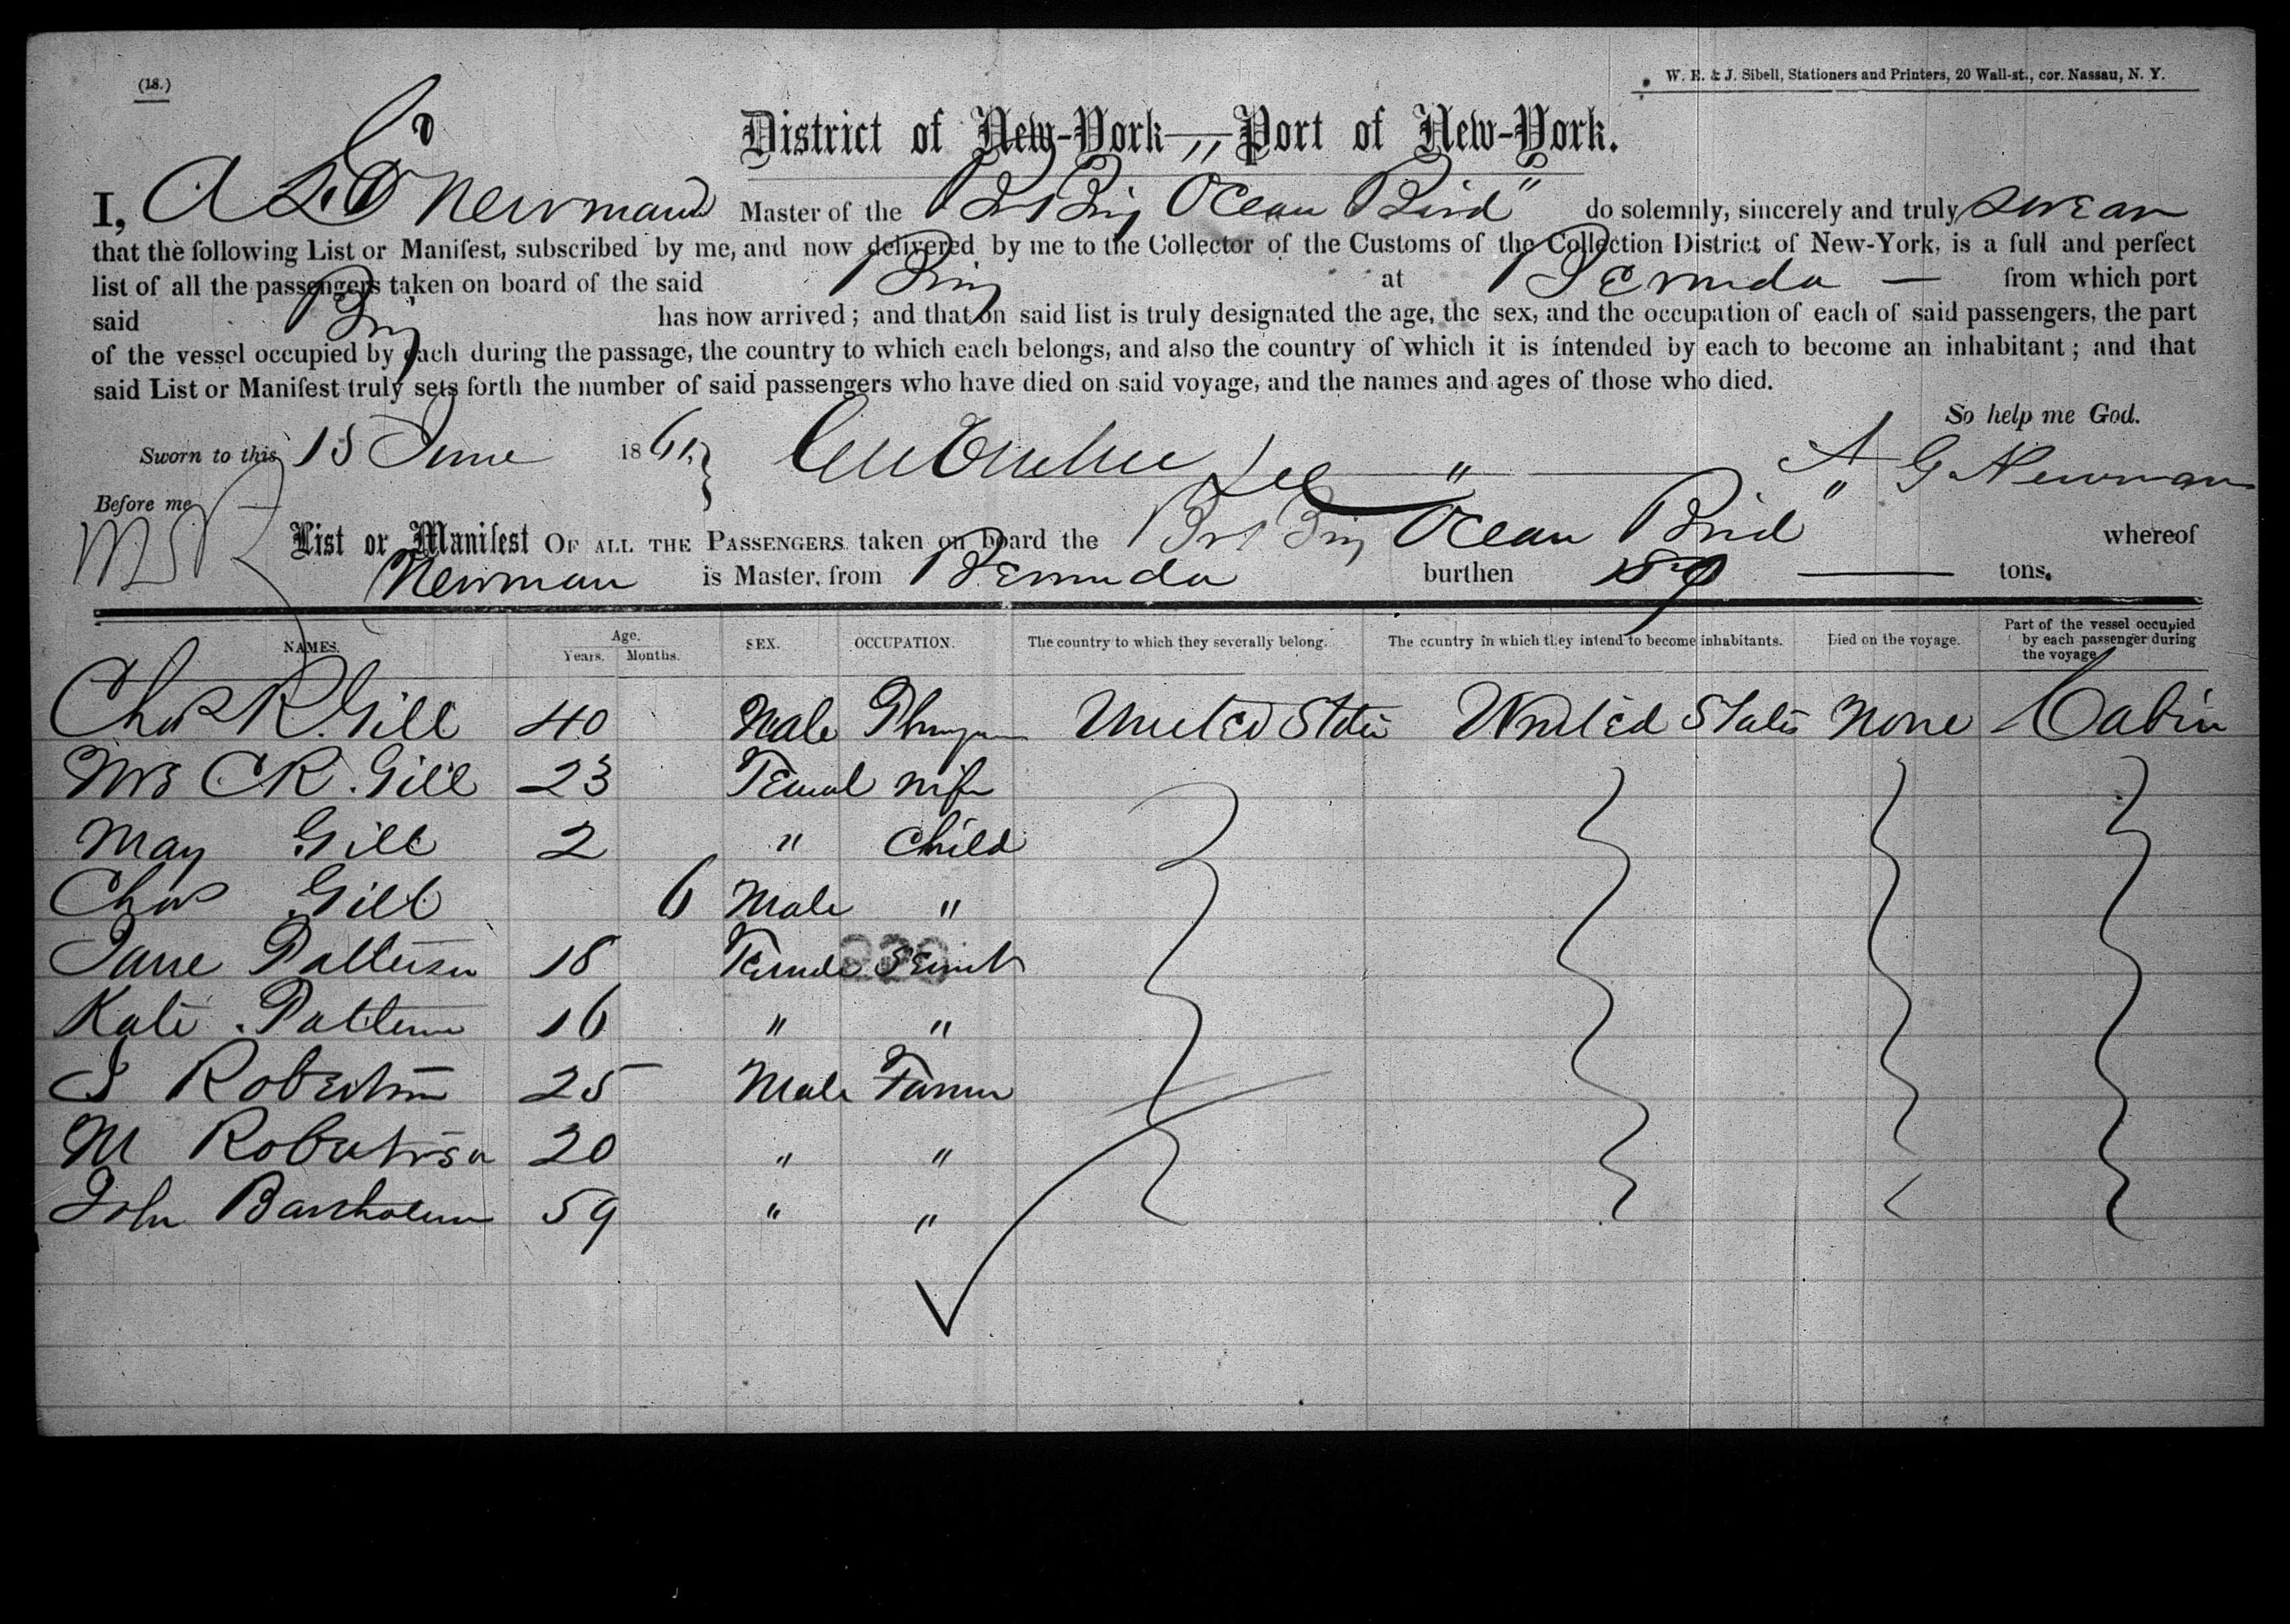 (18.)
W. E. & J. Sibell, Stationers and Printers, 20 Wall-st., cor. Nassau, N. Y.
District of New-York — Port of New-York.
I, A Newman Master of the Brt Brig Ocean Bird" do solemnly, sincerely and truly swear
that the following List or Manifest, subscribed by me, and now delivered by me to the Collector of the Customs of the Collection District of New-York, is a full and perfect
list of all the passengers taken on board of the said Brig at Bermuda — from which port
said Brig has now arrived; and that on said list is truly designated the age, the sex, and the occupation of each of said passengers, the part
of the vessel occupied by each during the passage, the country to which each belongs, and also the country of which it is intended by each to become an inhabitant; and that
said List or Manifest truly sets forth the number of said passengers who have died on said voyage, and the names and ages of those who died.
So help me God.
Sworn to this 15 June 1861, A G Newman
Before me
List or Manifest OF ALL THE PASSENGERS taken on board the Brt Brig Ocean Bird" whereof
Newman is Master, from Bermuda burthen 189 — tons.
NAMES. Age. Years. Months. SEX. OCCUPATION. The country to which they severally belong. The country in which they intend to become inhabitants. Died on the voyage. Part of the vessel occupied by each passenger during the voyage
Chas R. Gill 40 Male United States United States None Cabin
Mrs C R. Gill 23 Femal wife
May Gill 2 " Child
Chas Gill 6 Male "
Jane Patterson 18 Female Servt
Kate Patterson 16 " "
J Robertson 25 Male Farmer
M Robertson 20 " "
John 59 " "